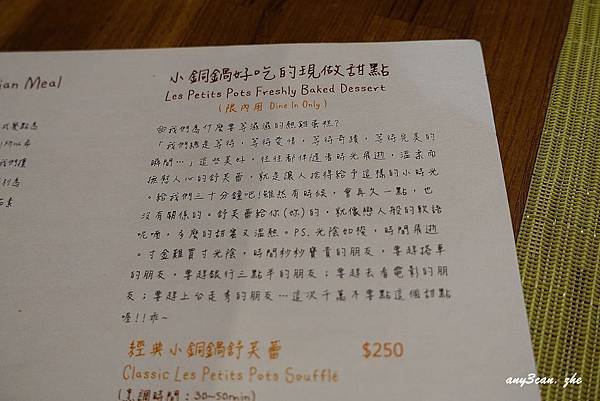 ian Meal
小銅鍋好吃的現做甜點
Les Petits Pots Freshly Baked Dessert
(限內用 Dine In Only)
我們為什麼要等溫溫的熱雞蛋糕?
「我們總是等待,等待愛情,等待奇蹟,等待完美的
瞬間…」這些美好,往往都伴隨著時光飛逝,溫柔而
撫慰人心的舒芙蕾,就是讓人捨得給予這樣的小時光
。給我們三十分鐘吧!雖然有時候,會再久一點,也
沒有關係的。舒芙蕾給你(妳)的,就像戀人般的軟語
呢喃,多麼的甜蜜又溫熱。PS.光陰如梭,時間飛逝
。寸金難買寸光陰,時間秒秒寶貴的朋友,要趕搭車
的朋友,要趕銀行三點半的朋友;要趕去看電影的朋
友;要趕上台走秀的朋友…這次千萬不要點這個甜點
喔!!乖~
經典小銅鍋舒芙蕾 $250
Classic Les Petits Pots Soufflé
(烹調時間:30~50min)
any3can. zhe